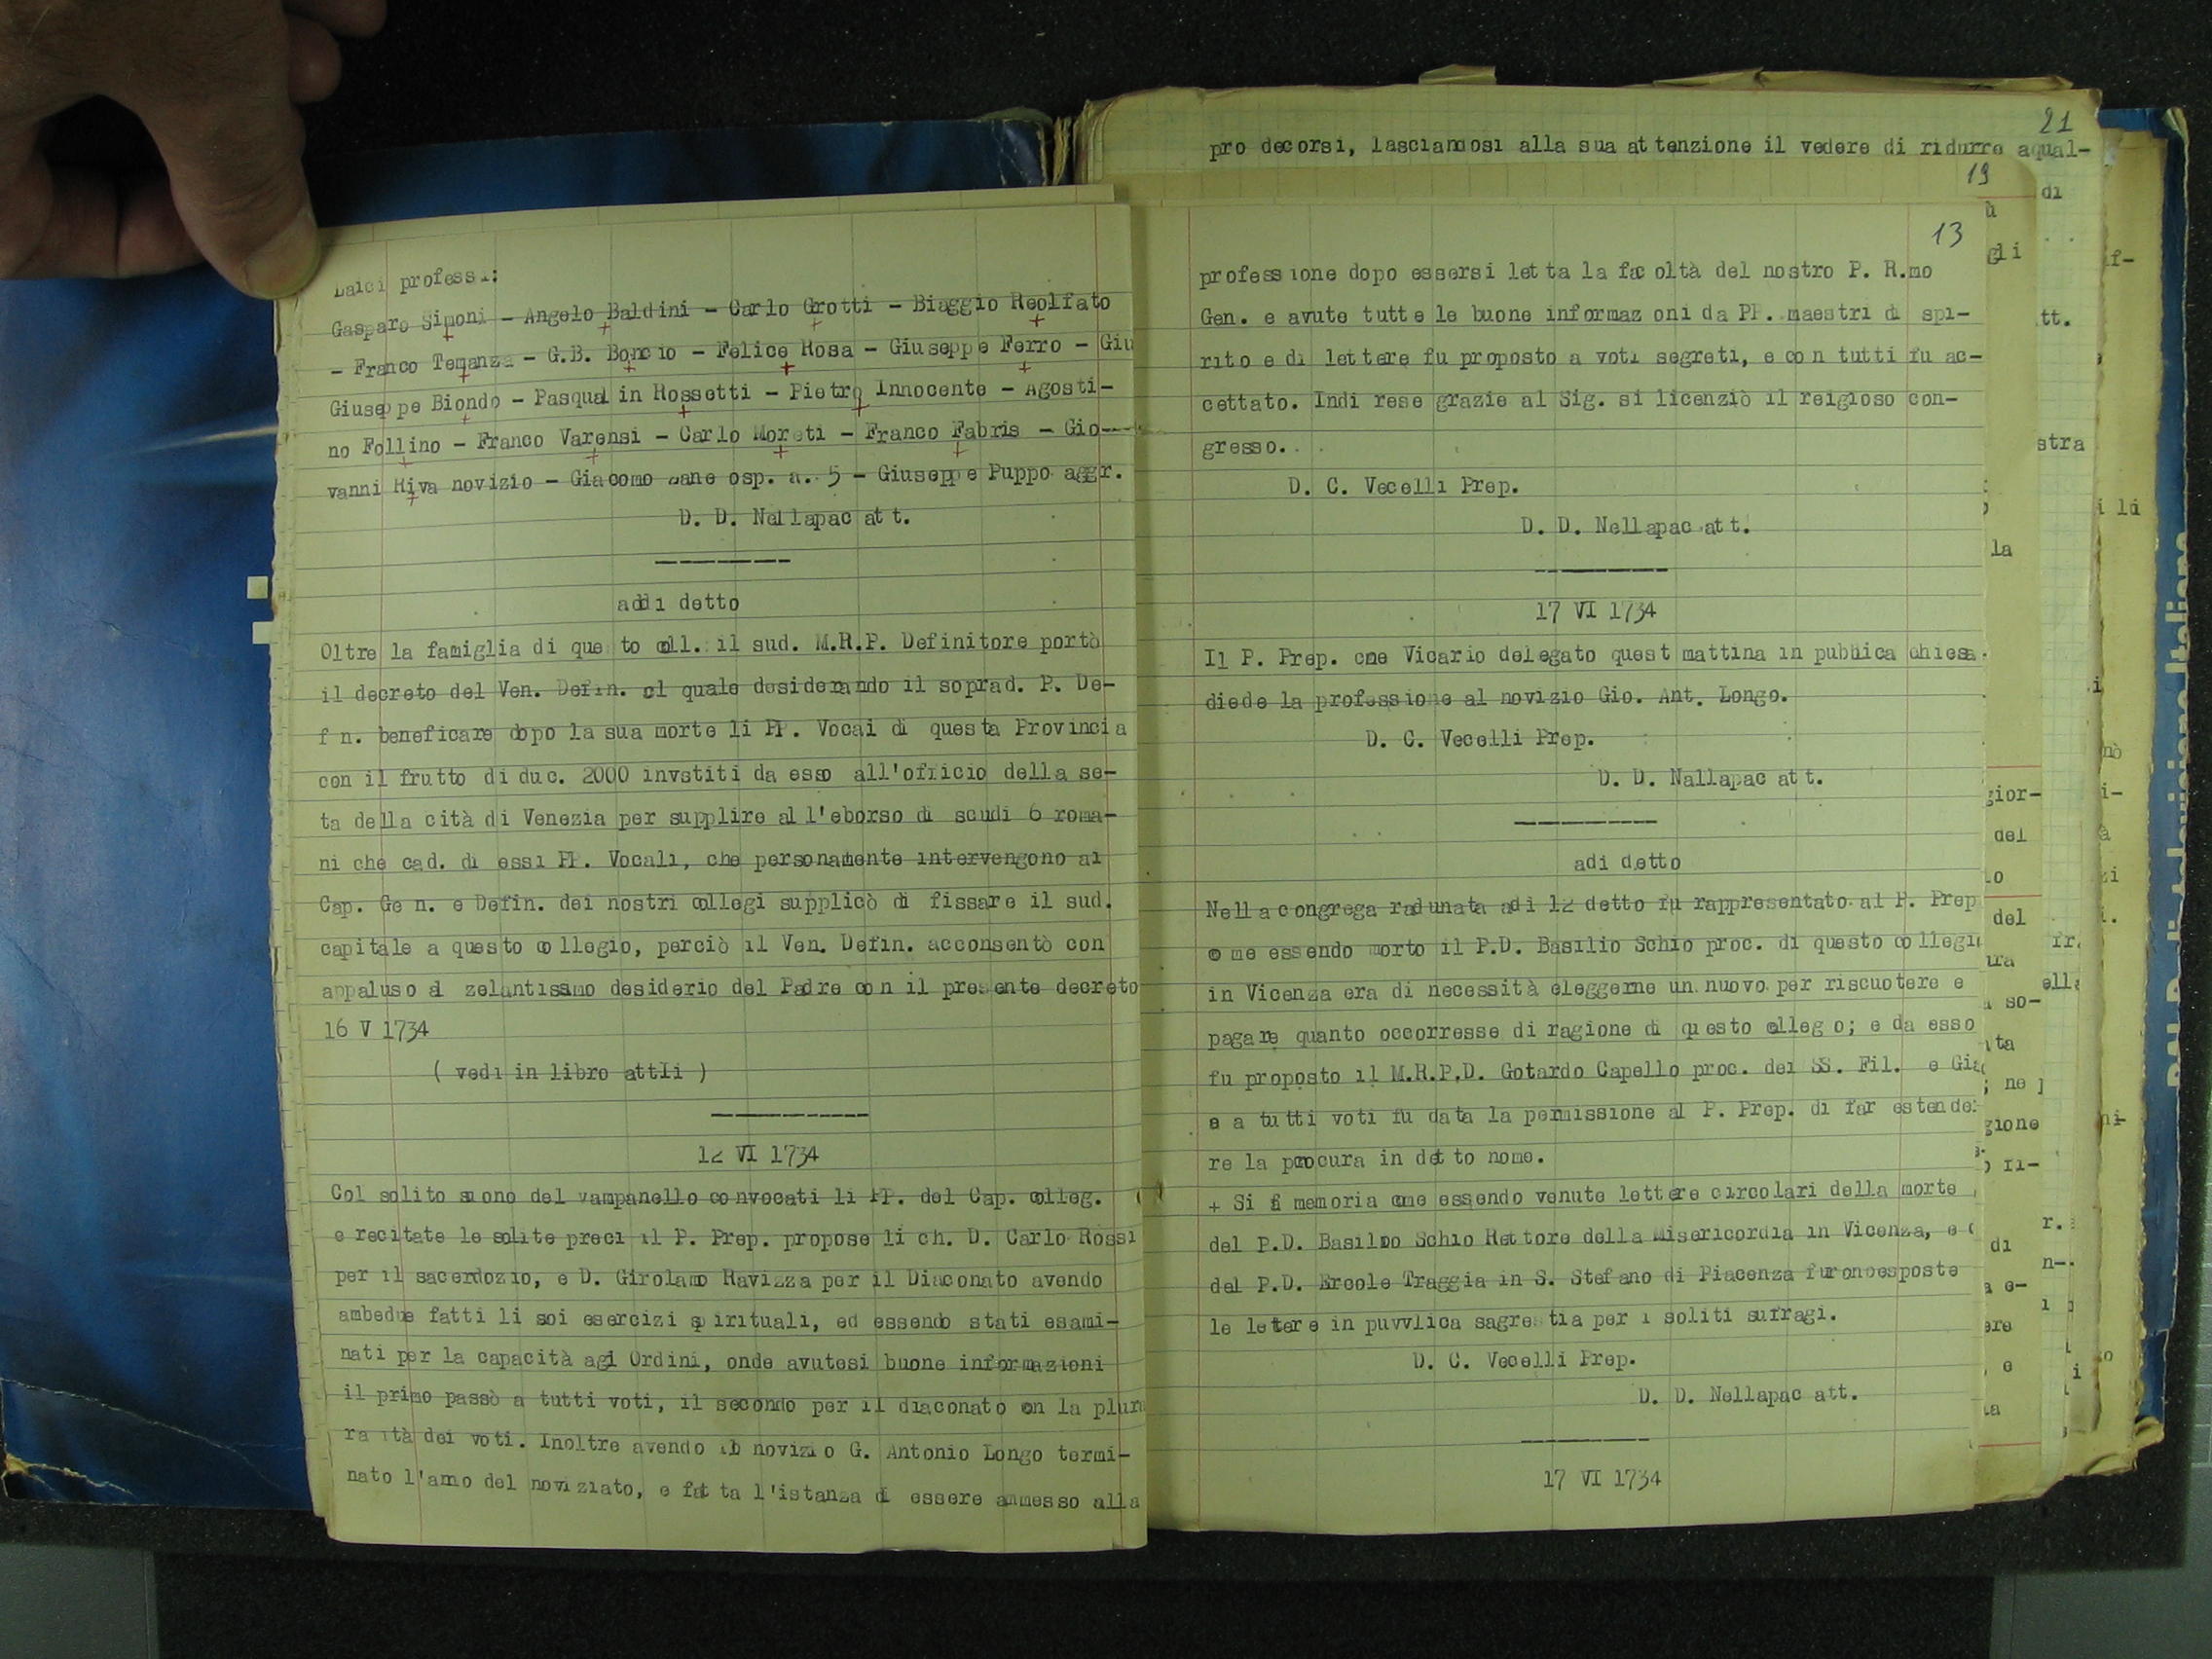 Laici professi:
Gasparo Simoni - Angelo Baldini - Carlo Grotti - Biaggio Reolfato
- Franco Temanza - G.B. Boncio - Felice Rosa - Giuseppe Ferro - Giu
Giuseppe Biondo - Pasqualin Rossetti - Pietro Innocente - Agosti-
no Follino - Franco Varensi - Carlo Moreti - Franco Fabris - Gio--
vanni Riva novizio - Giacomo Zane osp. a. 5 - Giuseppe Puppo aggr.
D. D. Nellapac att.
addi detto
Oltre la famiglia di que to coll. il sud. M.R.P. Definitore portò
il decreto del Ven. Defin. cl quale desiderando il soprad. P. De-
f n. beneficare dopo la sua morte li PP. Vocai di questa Provincia
con il frutto di duc. 2000 invstiti da esso all'officio della se-
ta della cità di Venezia per supplire all'eborso di scudi 6 roma-
ni che cad. di essi PP. Vocali, che personamente intervengono al
Cap. Gen. e Defin. dei nostri collegi supplicò di fissare il sud.
capitale a questo collegio, perciò il Ven. Defin. acconsentò con
appaluso al zelantissmo desiderio del Padre con il presente decreto
16 V 1734
( vedi in libro attIi )
12 VI 1734
Col solito suono del vampanello convocati li PP. del Cap. colleg.
e recitate le solite preci il P. Prep. propose li ch. D. Carlo Rossi
per il sacerdozio, e D. Girolamo Ravizza per il Diaconato avendo
ambedue fatti li soi esercizi spirituali, ed essendo stati esami-
nati per la capacità agi Ordini, onde avutesi buone informazioni
il primo passò a tutti voti, il secondo per il diaconato con la plura
ra ità dei voti. Inoltre avendo ib novizio G. Antonio Longo termi-
nato l'anno del noviziato, e fatta l'istanza di essere ammesso alla
21
pro decorsi, lasciandosi alla sua attenzione il vedere di ridurre aqual-
19
13
professione dopo essersi letta la facoltà del nostro P. R.mo
Gen. e avute tutte le buone informaz oni da PP. maestri di spi-
rito e di lettere fu proposto a voti segreti, e con tutti fu ac-
cettato. Indi rese grazie al Sig. si licenziò il reigioso con-
gresso.
D. C. Vecelli Prep.
D. D. Nellapac att.
17 VI 1734
Il P. Prep. cne Vicario delegato quest mattina in pubblica chiesa
diede la professione al novizio Gio. Ant. Longo.
D. C. Vecelli Prep.
D. D. Nallapac att.
adi detto
Nella congrega radunata adi 12 detto fu rappresentato al P. Prep
come essendo morto il P.D. Basilio Schio proc. di questo collegi
in Vicenza era di necessità eleggerne un nuovo per riscuotere e
pagare quanto occorresse di ragione di questo colleg o; e da esso
fu proposto il M.R.P.D. Gotardo Capello proc. dei SS. Fil. e Gia
e a tutti voti fu data la permissione al P. Prep. di far estende
re la procura in detto nome.
+ Si fa memoria come essendo venute lettere circolari della morte
del P.D. Basilio Schio Rettore della Misericordia in Vicenza, e
del P.D. Ercole Traggia in S. Stefano di Piacenza furonoesposte
le lettere in puvvlica sagrestia per i soliti suffragi.
D. C. Vecelli Prep.
D. D. Nellapac att.
17 VI 1734